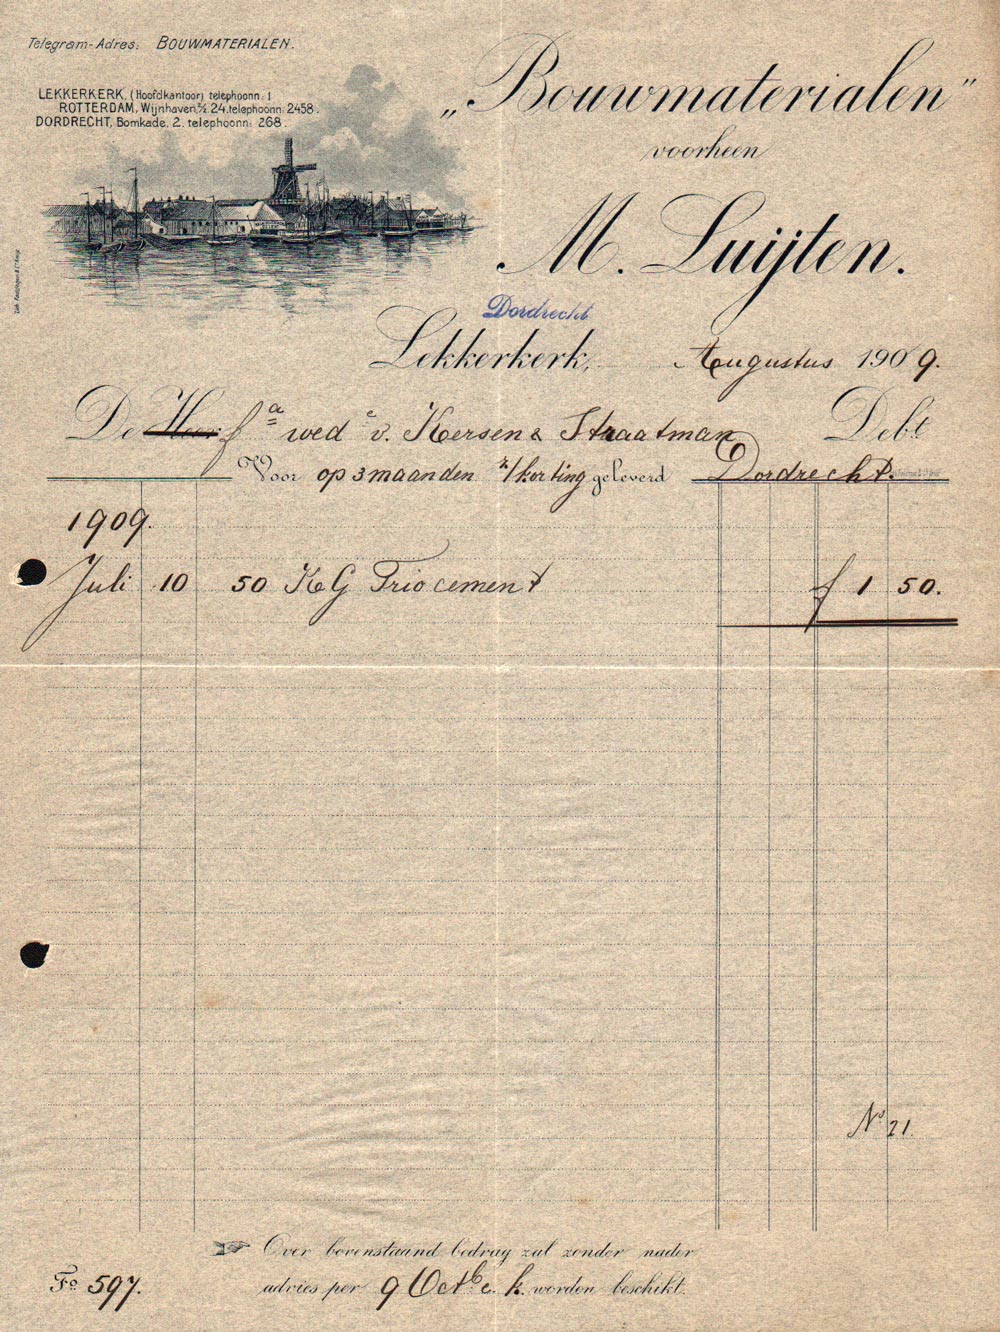 Telegram-Adres: BOUWMATERIALEN.
LEKKERKERK, (Hoofdkantoor) telephoonn: 1
ROTTERDAM, Wijnhaven Z/Z 24. telephoonn: 2458.
DORDRECHT, Bomkade. 2. telephoonn: 268.
„Bouwmaterialen”
voorheen
M. Luijten.
Dordrecht
Lekkerkerk, Augustus 1909.
De Heer fa wed e v. Kersen & Straatman Debt
Voor op 3 maanden z/korting geleverd Dordrecht.
1909.
Juli 10 50 KG Triocement f 1 50.
No 21.
Over bovenstaand bedrag zal zonder nader
Fo 597. advies per 9 Octb. e. k. worden beschikt.